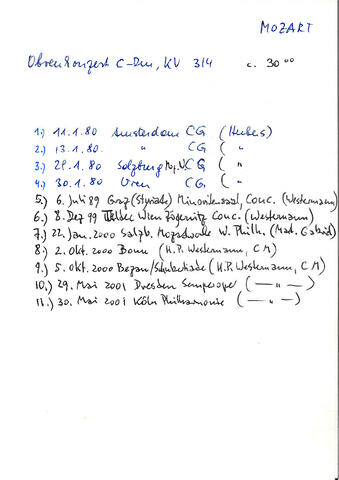 MOZART
Oboenkonzert C-Dur, KV 314 c. 30 00
1.) 11.1.80 Amsterdam CG (Huber)
2.) 13.1.80. " CG ( "
3.) 29.1.80 Salzburg CG ( "
4.) 30.1.80 Wien CG ( "
5.) 6. Juli 89 Graz (Styriade) Minoritensaal, Conc. (Westermann)
6.) 8. Dez 99 Wien Zögernitz Conc. (Westermann)
7.) 22. Jan. 2000 Salzb. Mozartwoche W. Philh. (Mart. Gabriel)
8.) 2. Okt. 2000 Bonn (H.P. Westermann, CM)
9.) 5. Okt. 2000 Bozen/Schubertiade (H.P. Westermann, CM)
10.) 29. Mai 2001 Dresden Semperoper (— " —)
11.) 30. Mai 2001 Köln Philharmonie (— " —)